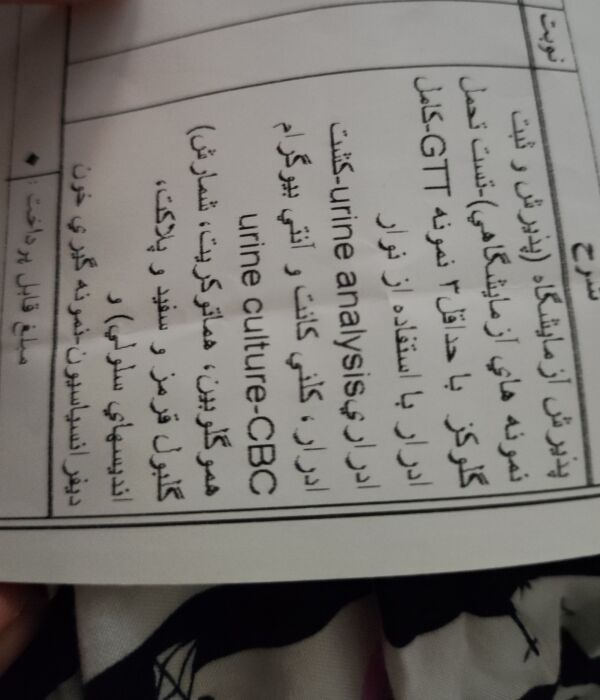 شرح
نوبت
پذیرش آزمایشگاه (پذیرش و ثبت
نمونه های آزمایشگاهی)-تست تحمل
گلوکز با حداقل ۳ نمونه GTT-کامل
ادرار با استفاده از نوار
ادراری urine analysis-کشت
ادرار، کلنی کانت و آنتی بیوگرام
urine culture-CBC
هموگلوبین، هماتوکریت، شمارش)
گلبول قرمز و سفید و پلاکت،
اندیسهای سلولی) و
دیفرانسیاسیون-نمونه گیری خون
مبلغ قابل پرداخت :